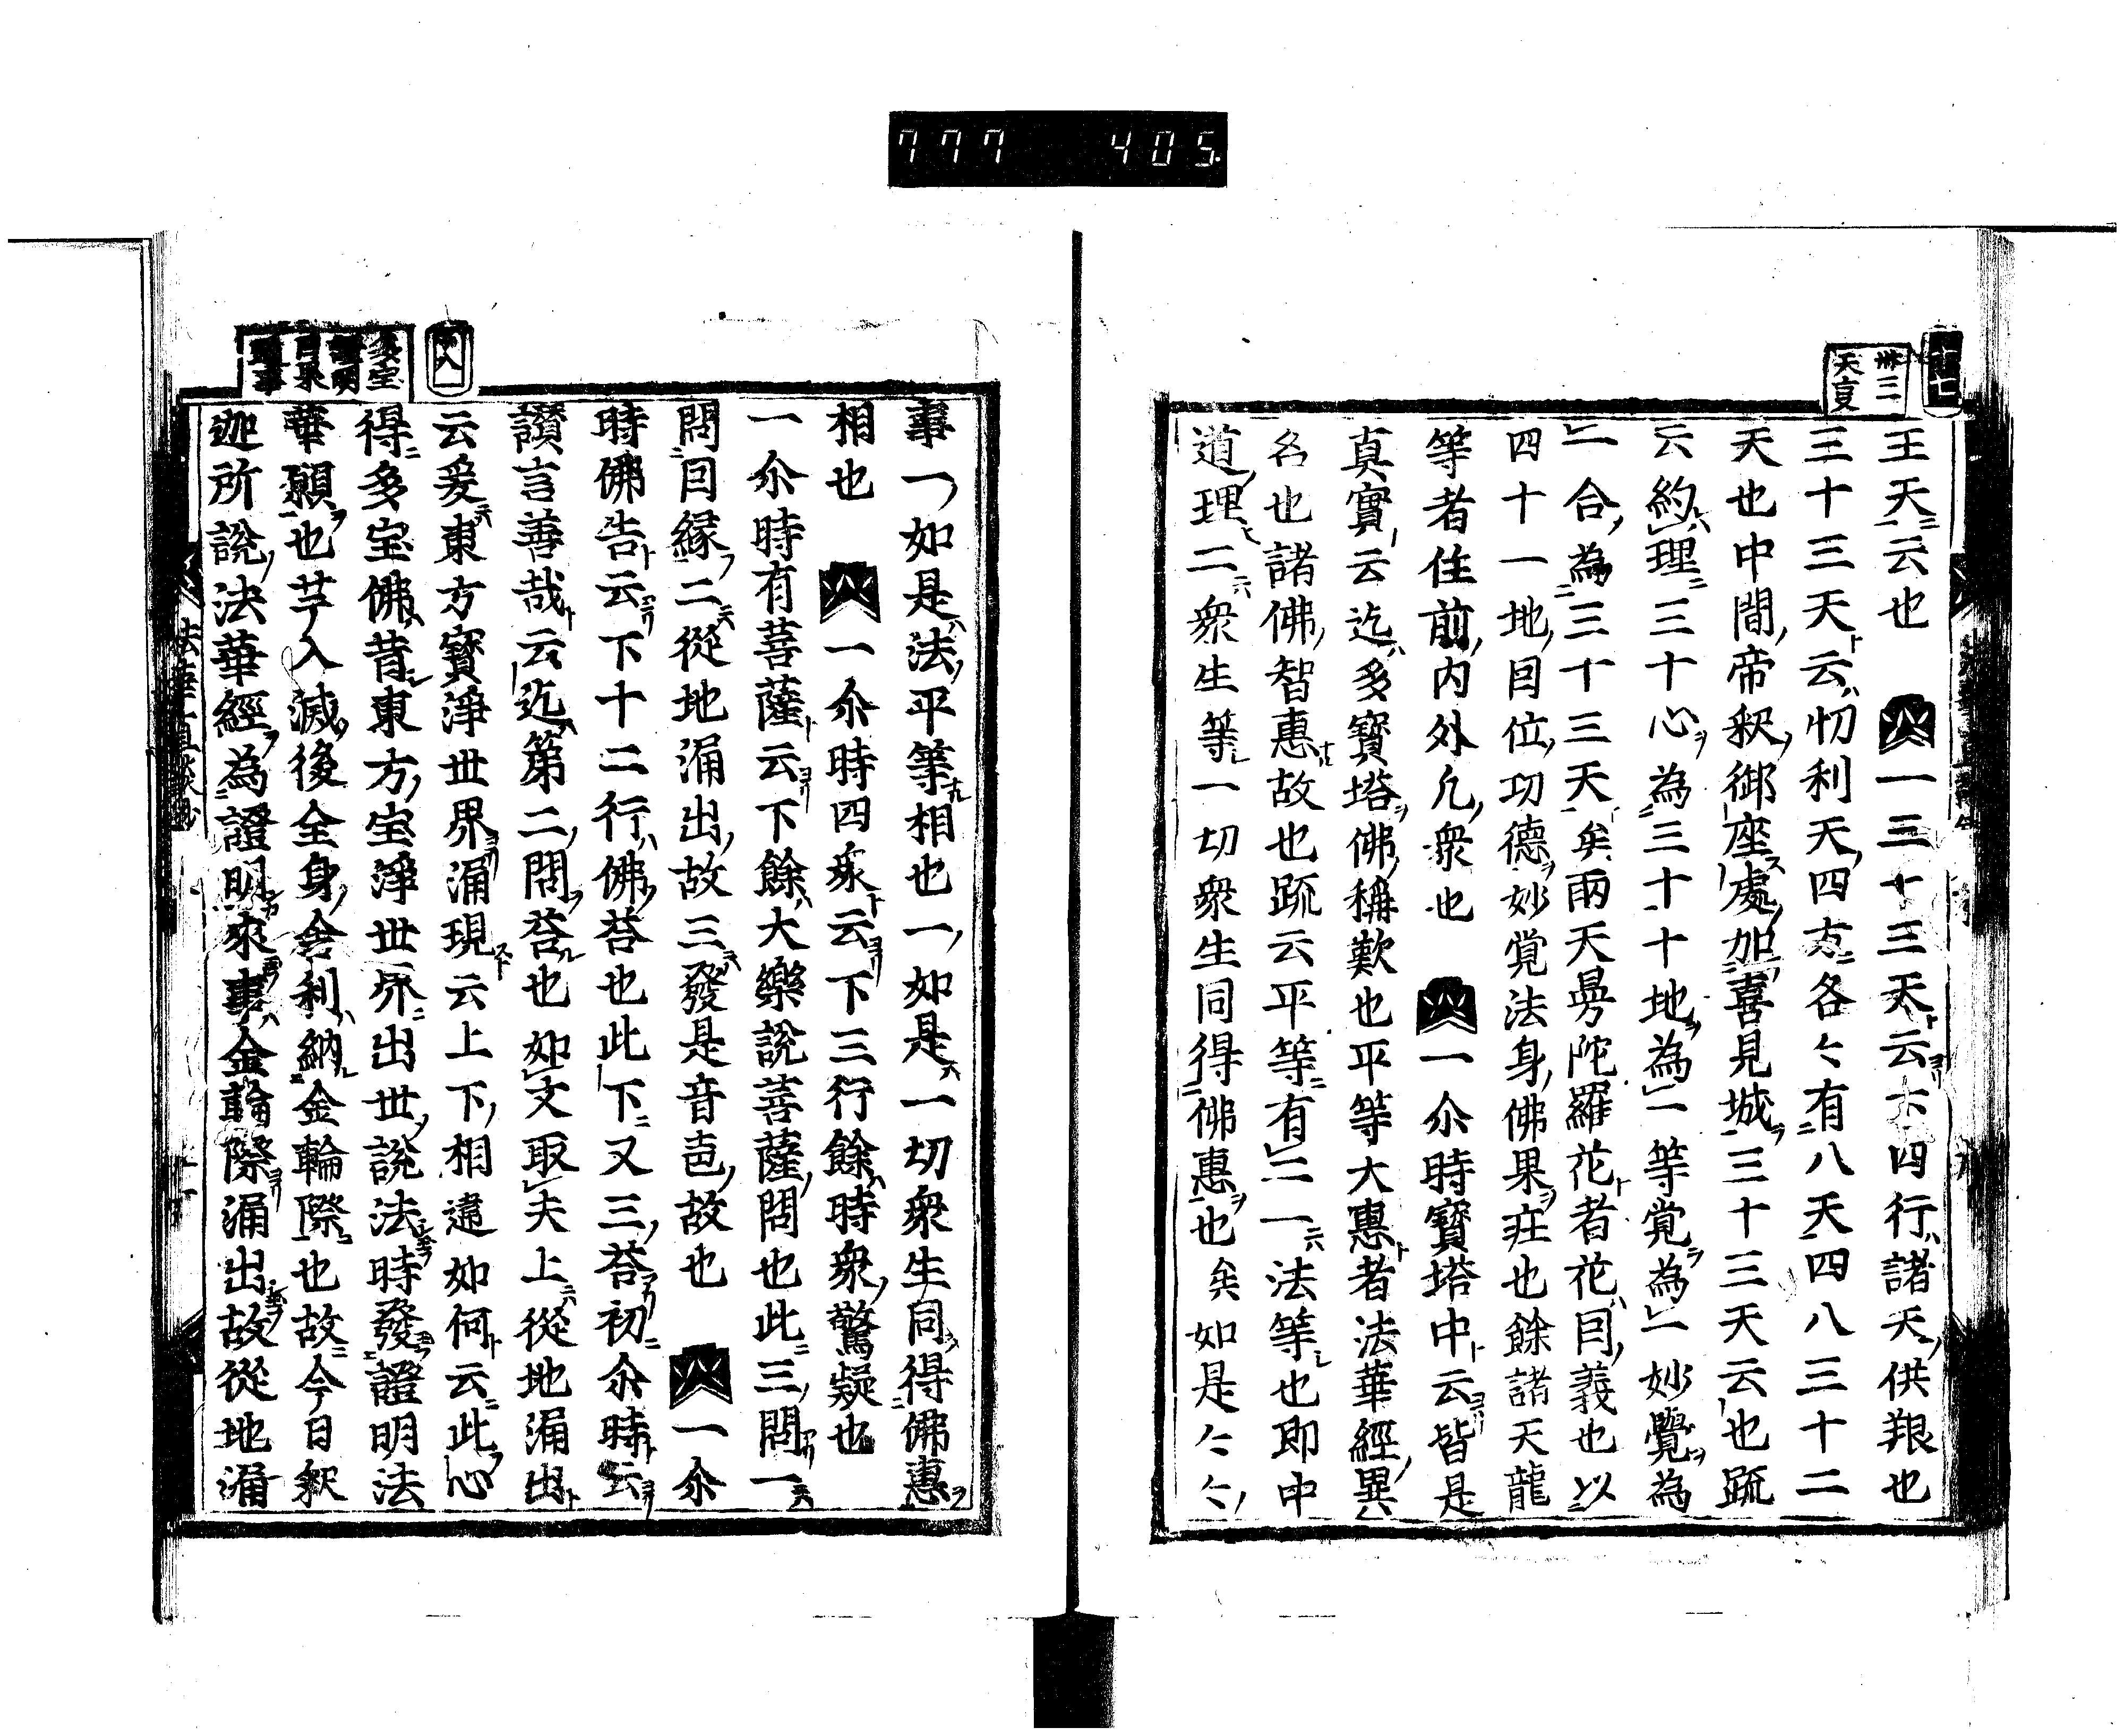 777 405
卅三
天事
王天云也 一三十三天云下四行諸天供粮也
三十三天云忉利天四方各々有八天四八三十二
天也中間帝釈御座處加喜見城三十三天云也疏
云約理三十心為三十十地為一等覚為一妙覺為
一合為三十三天矣雨天曼陀羅花者花因義也以
四十一地因位功德妙覚法身佛果庄也餘諸天龍
等者住前内外凡衆也 一尒時寳塔中云皆是
真實云迄多寳塔佛稱歎也平等大惠者法華經異
名也諸佛智惠故也疏云平等有二一法等也即中
道理二衆生等一切衆生同得佛惠也矣如是々々
事一如是法平等相也一如是一切衆生同得佛惠
相也 一尒時四衆云下三行餘時衆驚疑也
一尒時有菩薩云下餘大樂說菩薩問也此三問一
問因縁二從地涌出故三發是音声故也 一尒
時佛告云下十二行佛荅也此下又三荅初尒時云
讃言善哉云迄第二問荅也如文取夫上從地涌出
云爰東方寳淨世界涌現云上下相違如何云此心
得多宝佛昔東方宝淨世界出世說法時發證明法
華願也芋入滅後全身舎利納金輪際也故今日釈
迦所說法華經為證明來事金輪際涌出故從地涌
多宝
證明
法華直談鈔